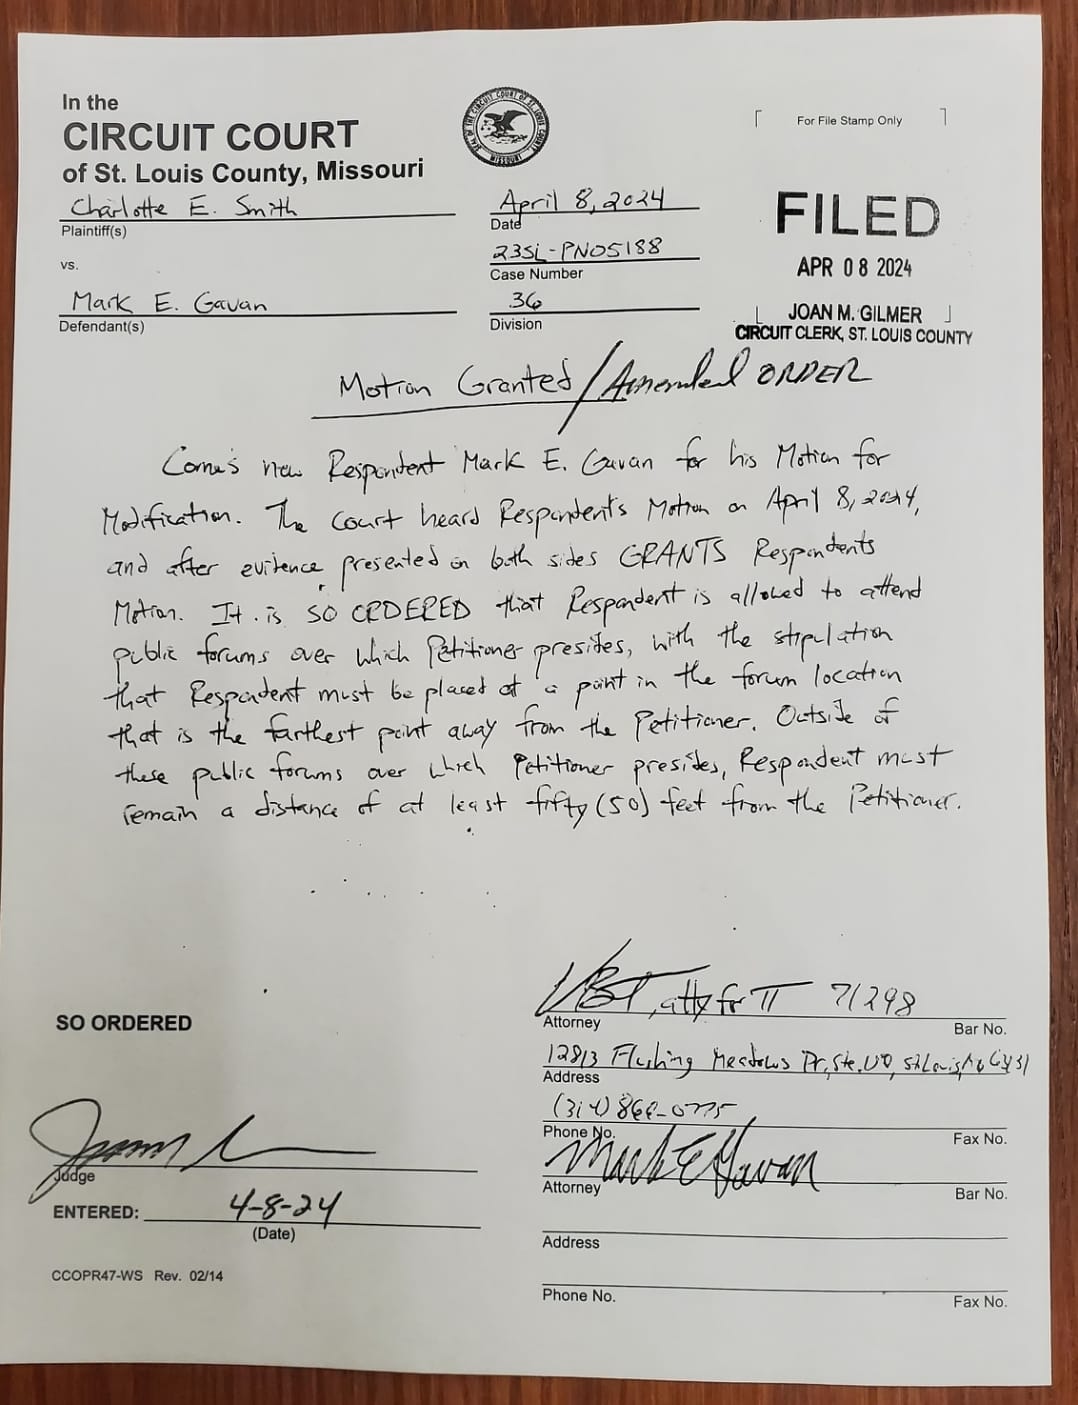 In the
CIRCUIT COURT
of St. Louis County, Missouri
SEAL OF THE CIRCUIT COURT OF ST. LOUIS COUNTY MISSOURI
For File Stamp Only
Charlotte E. Smith
Plaintiff(s)
vs.
Mark E. Gavan
Defendant(s)
April 8, 2024
Date
23SL-PN05188
Case Number
36
Division
FILED
APR 08 2024
JOAN M. GILMER
CIRCUIT CLERK, ST. LOUIS COUNTY
Motion Granted / Amended ORDER
Comes now Respondent Mark E. Gavan for his Motion for
Modification. The Court heard Respondent's Motion on April 8, 2024,
and after evidence presented on both sides GRANTS Respondents
Motion. It is SO ORDERED that Respondent is allowed to attend
public forums over which Petitioner presides, with the stipulation
that Respondent must be placed at a point in the forum location
that is the farthest point away from the Petitioner. Outside of
these public forums over which Petitioner presides, Respondent must
remain a distance of at least fifty (50) feet from the Petitioner.
SO ORDERED
Judge
ENTERED: 4-8-24
(Date)
CCOPR47-WS Rev. 02/14
, atty for π 71298
Attorney Bar No.
12813 Flushing Meadows Dr, Ste.
Address
(314)
Phone No. Fax No.
Mark E Gavan
Attorney Bar No.
Address
Phone No. Fax No.